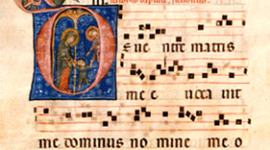 De ue ntre matris
me e uoca uit
me dominus no mine me o